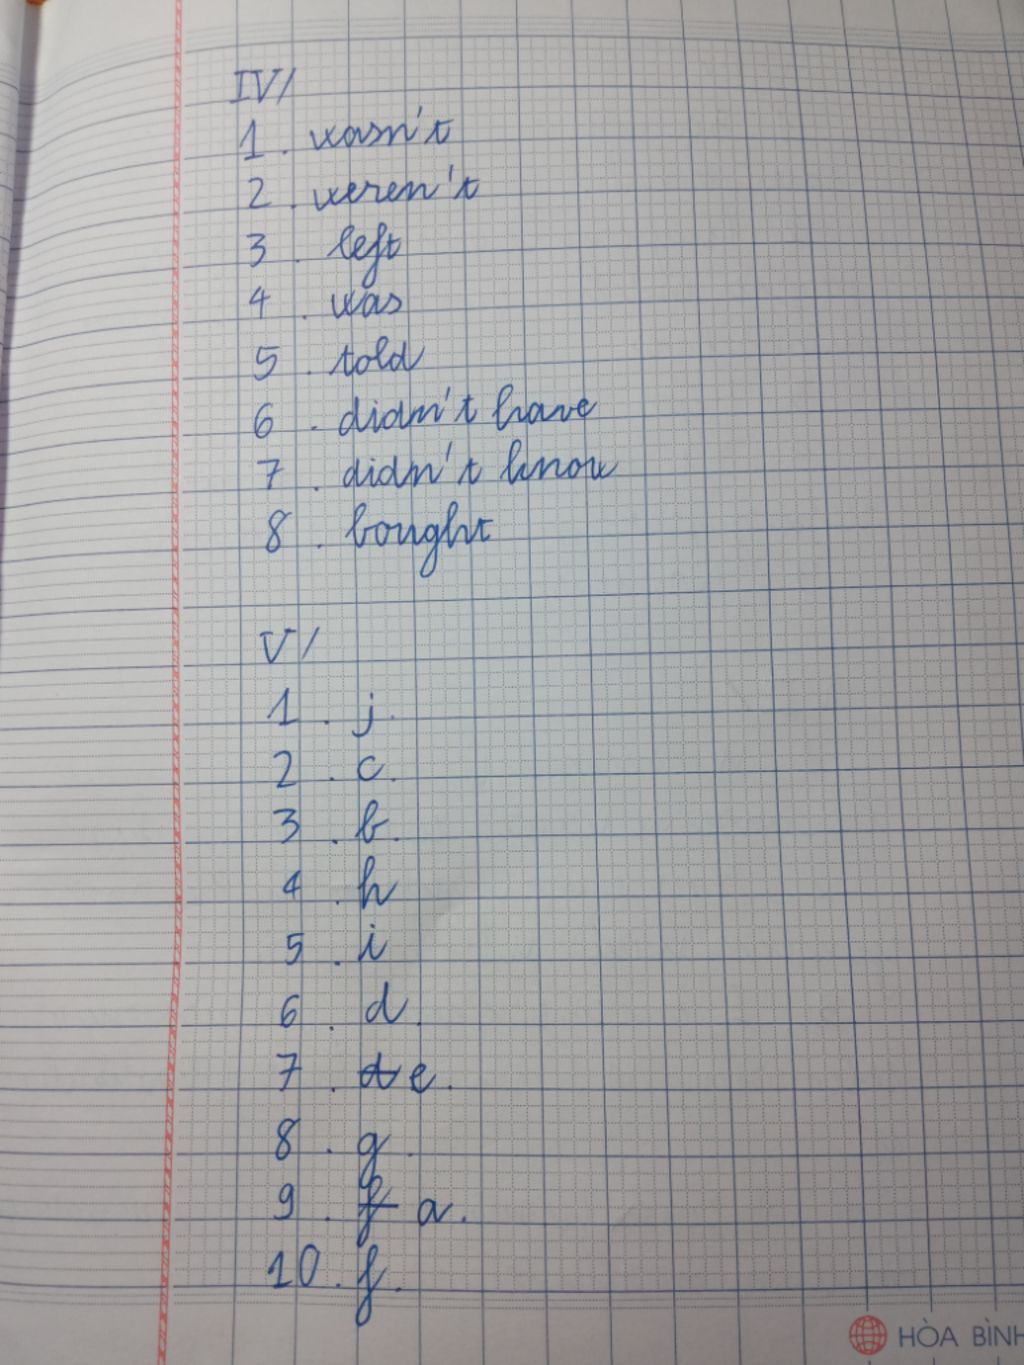 IV/
1. wasn't
2. weren't
3. left
4. was
5. told
6. didn't have
7. didn't know
8. bought
V/
1. j.
2. c.
3. b.
4. h
5. i
6. d.
7. d e.
8. g.
9. f a.
10. f.
HÒA BÌNH